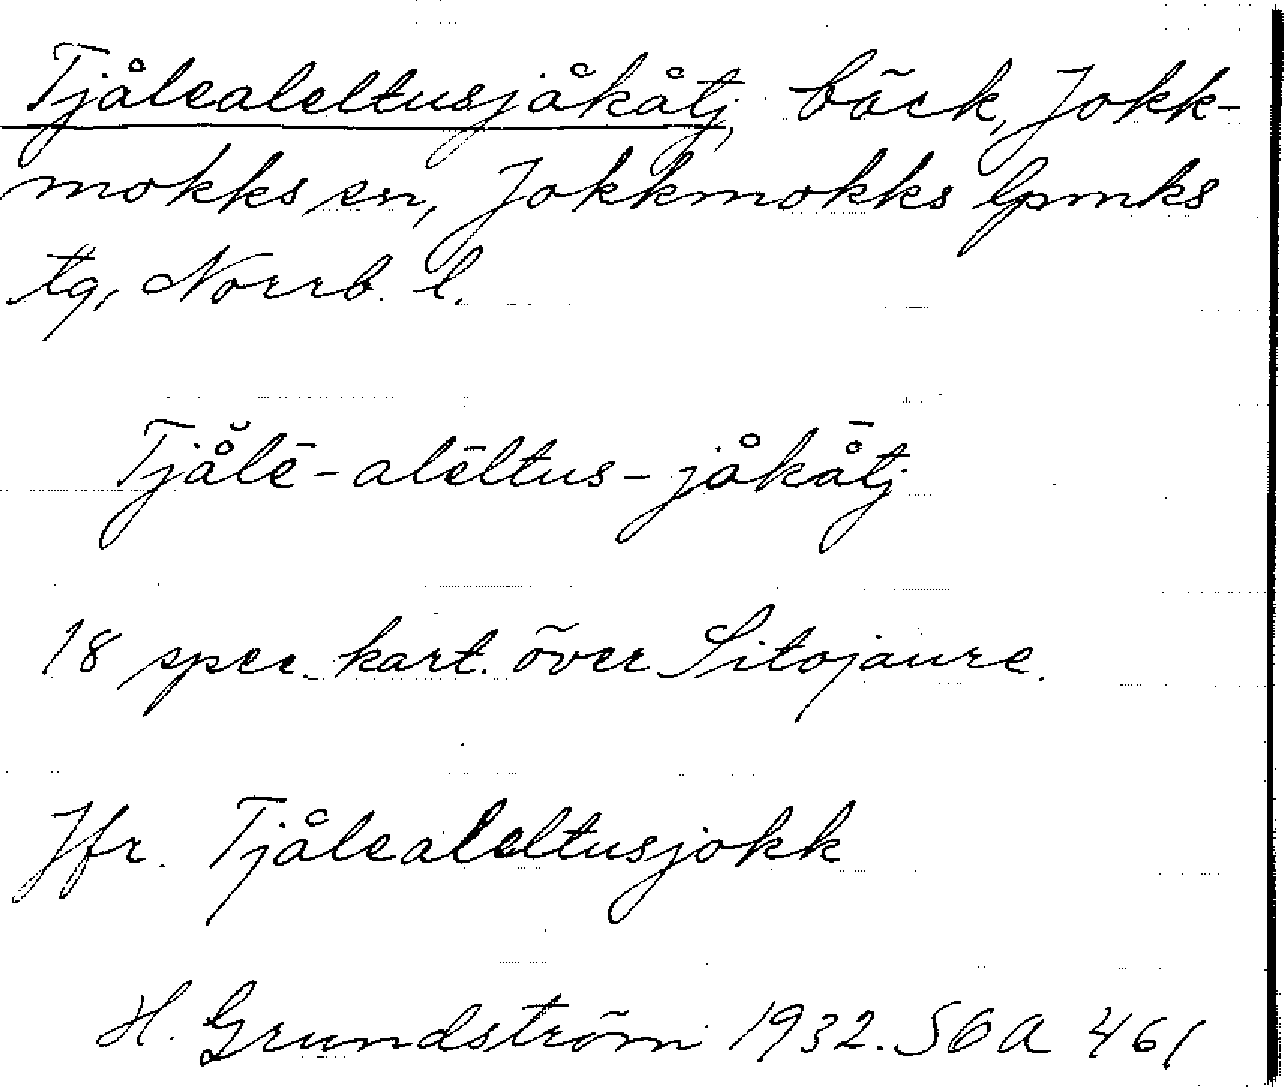 Tjålealeltusjåkåtj, bäck, Jokk-
mokks sn, Jokkmokks lpmks
tg, Norrb. l.
Tjå̆lē-alēltus-jåkå̄tj
18 spec. kart. över Sitojaure.
Jfr. Tjålealeltusjokk
H. Grundström 1932. SOA 461